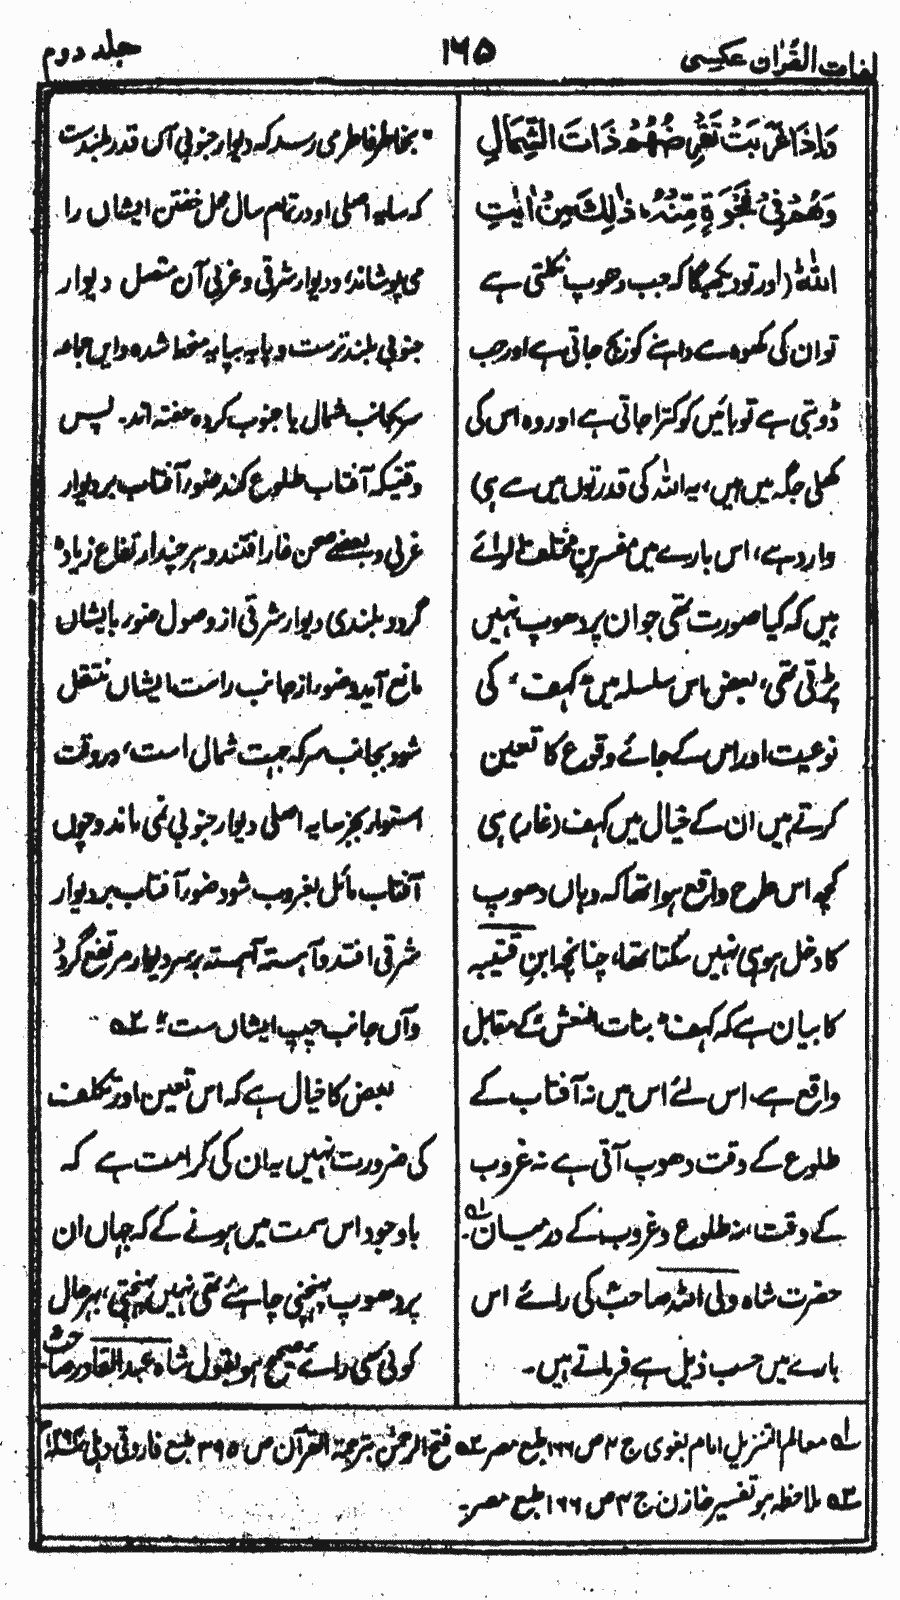 لغات القرآن عکسی
۱۶۵
جلد دوم
وَإِذَا غَرَبَتْ تَقْرِضُهُمْ ذَاتَ الشِّمَالِ
وَهُمْ فِي فَجْوَةٍ مِّنْهُ، ذٰلِكَ مِنْ اٰيٰتِ
اللّٰهِ (اور تو دیکھیگا کہ جب دھوپ نکلتی ہے
تو ان کی کھوہ سے داہنے کو زچ جاتی ہے اور جب
ڈوبتی ہے تو بائیں کو کترا جاتی ہے اور وہ اس کی
کھلی جگہ میں ہیں، یہ اللہ کی قدرتوں میں سے ہی)
وارد ہے، اس بارے میں مفسرین مختلف الرائے
ہیں کہ کیا صورت تھی جو ان پر دھوپ نہیں
پڑتی تھی، بعض اس سلسلہ میں "کہف" کی
نوعیت اور اس کے جائے وقوع کا تعین
کرتے ہیں ان کے خیال میں کہف (غار) ہی
کچھ اس طرح واقع ہوا تھا کہ وہاں دھوپ
کا دخل ہو ہی نہیں سکتا تھا، چنانچہ ابن قتیبہ
کا بیان ہے کہ کہف "بنات النعش" کے مقابل
واقع ہے، اس لئے اس میں نہ آفتاب کے
طلوع کے وقت دھوپ آتی ہے نہ غروب
کے وقت، نہ طلوع و غروب کے درمیان ۱ھ
حضرت شاہ ولی اللہ صاحب کی رائے اس
بارے میں حسب ذیل ہے فرماتے ہیں۔
"بخاطر فاطر می رسد کہ دیوار جنوبی آں قدر بلند ست
کہ سایہ اصلی او در تمام سال محل خفتن ایشاں را
می پوشاند، و دیوار شرقی و غربی آن متصل دیوار
جنوبی بلند تر ست و پایہ بپایہ منحط شدہ و این جامعہ
سر بجانب شمال پا جنوب کردہ خفتہ اند۔ پس
وقتیکہ آفتاب طلوع کند ضوء آفتاب بر دیوار
غربی و بعضے صحن غار افتند و ہر چند ارتفاع زیادہ
گردد بلندی دیوار شرقی از وصول ضوء بایشاں
مانع آید و ضوء از جانب راست ایشاں منتقل
شود بجانب سر کہ جہت شمال است، و در وقت
استواء بجز سایہ اصلی دیوار جنوبی نمی ماند و چوں
آفتاب مائل بغروب شود ضوء آفتاب بر دیوار
شرقی افتد و آہستہ آہستہ بر سر دیوار مرتفع گردد
و آں جانب چپ ایشاں ست" ۲ھ
بعض کا خیال ہے کہ اس تعین اور تکلف
کی ضرورت نہیں یہ ان کی کرامت ہے کہ
باوجود اس سمت میں ہونے کے کہ جہاں ان
پر دھوپ پہنچنی چاہئے تھی نہیں پہنچتی، بہر حال
کوئی سی رائے صحیح ہو بقول شاہ عبدالقادر صاحب
۱ھ معالم التنزیل امام بغوی ج ۳ ص ۱۶۶ طبع مصر ۲ھ فتح الرحمٰن بترجمۃ القرآن ص ۳۹۵ طبع فاروقی دہلی
۳ھ ملاحظہ ہو تفسیر خازن ج ۳ ص ۱۶۶ طبع مصر۔